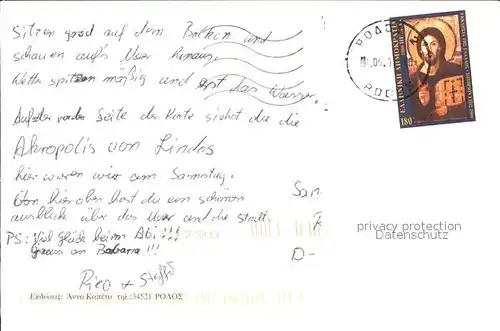 Sitzen grad auf dem Balkon und
schauen auf's Meer hinaus.
Wetter spitzenmäßig und erst das Wasser.
Auf der vorderen Seite der Karte siehst du die
Akropolis von Lindos
hier waren wir am Samstag.
Von hier oben hast du ein schönen
ausblick über das Meer und die Stadt.
PS: Viel Glück beim Abi!!!
Gruss an Babara!!!
Rico + Steffi
Εκδόσεις: Άννα Καπέτα τηλ.:34521 ΡΟΔΟΣ
San
D-
ΡΟΔΟΣ
ΕΛΛΗΝΙΚΗ ΔΗΜΟΚΡΑΤΙΑ
180
privacy protection
Datenschutz